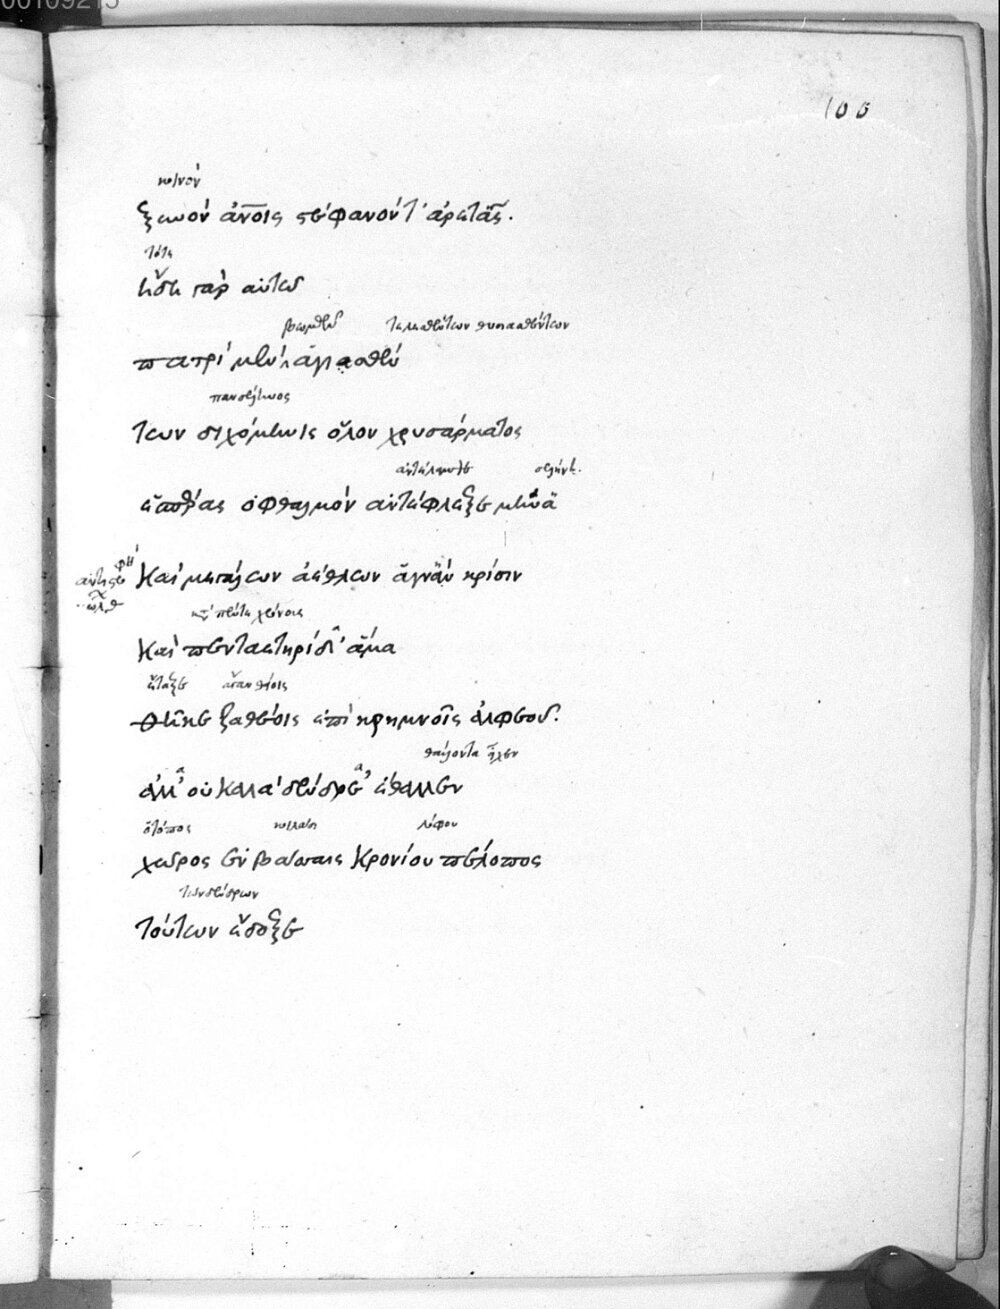 00109215
100
κοινόν
ξυνόν ἀνοις στέφανόν τ' ἀρετᾶς.
τότε
ἤδη γάρ αὐτῶ
βωμῶν τελεσθέντων θυσιασθέντων
πατρί μέν ἁγιασθέν
πανσέληνος
των διχόμηνις ὅλον χρυσάρματος
ἀντέλαμψε σελήνη.
ἑσπέρας ὀφθαλμόν ἀντέφλεξε μήνα
Καί μεγάλων ἀέθλων ἁγνάν κρίσιν
χρόνοις
Καί πενταετηρίδ' ἅμα
ἔταξε
θῆκε ζαθέοις ἐπί κρημνοῖς ἀλφεοῦ.
θάλλοντα εἶχεν
ἀλλ' οὐ καλά δένδρε' ἔθαλλεν
ὁ τόπος κοιλάσι λόφου
χῶρος ἐν βάσσαις Κρονίου πέλοπος
τῶν δένδρων
τούτων ἔδοξε